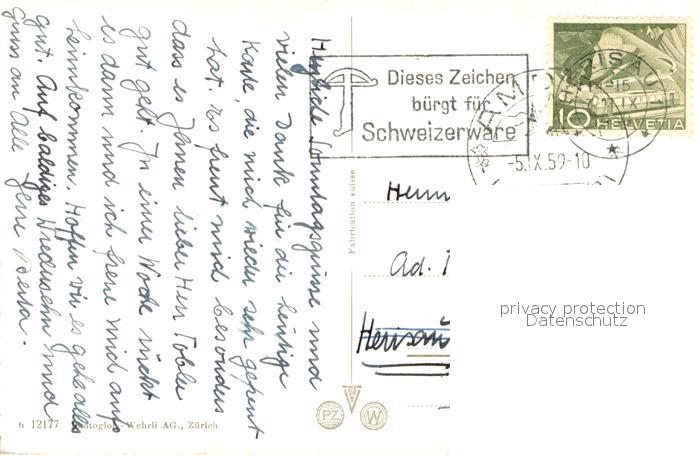 Herzliche Sonntagsgrüsse und
vielen Dank für die heutige
Karte, die mich wieder sehr gefreut
hat. Es freut mich besonders
dass es Ihnen lieber Herr Tobler
gut geht. In einer Woche rückt
es dann und ich freue mich aufs
heimkommen. Hoffen wir es gehe alles
gut. Auf baldiges Wiedersehn und
Gruss an Alle Ihre Berta.
h 12177 Photoglob-Wehrli AG., Zürich
Fabrication suisse
PZ
W
Dieses Zeichen
bürgt für
Schweizerware
-5.IX.59-10
10 HELVETIA
Herrn
Ad.
Herisau
privacy protection
Datenschutz